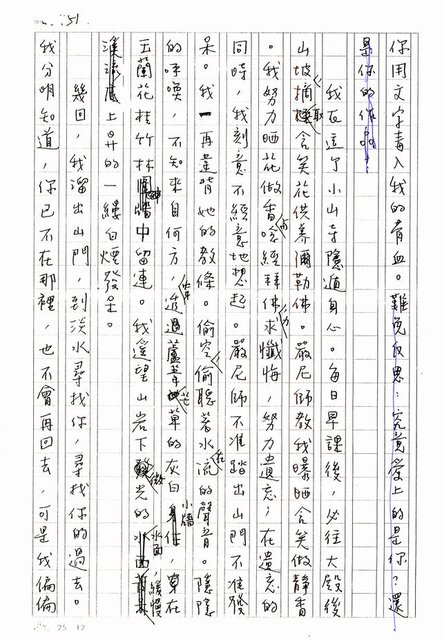 151.
你用文字毒入我的骨血。難免反思：究竟愛上的是你？還
是你的作品？
我在這了小山寺隱遁身心。每日早課後，必往大殿後
山坡摘取含笑花供養彌勒佛。嚴尼師教我曝晒含笑做靜香
。我努力晒花做香唸經拜佛求懺悔，努力遺忘；在遺忘的
同時，我刻意不經意地想起。嚴尼師不准踏出山門不准發
呆。我一再違背她的教條。偷空偷聽著水流的聲音。隱隱
的呼喚，不知來自何方，透過蘆芒草的灰白身住，穿在
玉蘭花桂竹林中留連。我遙望山岩下發光的水面，緩慢
上昇的一縷白煙發呆。
幾回，我溜出山門，到淡水尋找你，尋找你的過去。
我分明知道，你已不在那裡，也不會再回去，可是我偏偏
25 12